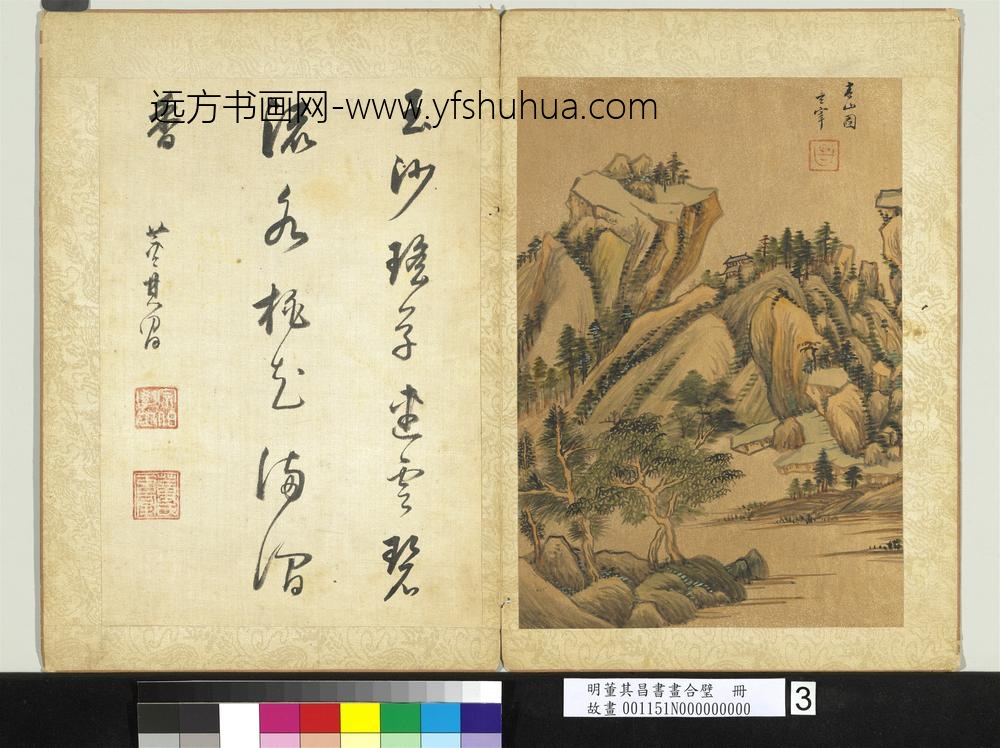 远方书画网-www.yfshuhua.com
山圖
玄宰
玉沙瑤草連雲碧
流水桃花滿澗
香
董其昌
明董其昌書畫合璧 冊
故畫 001151N000000000
3